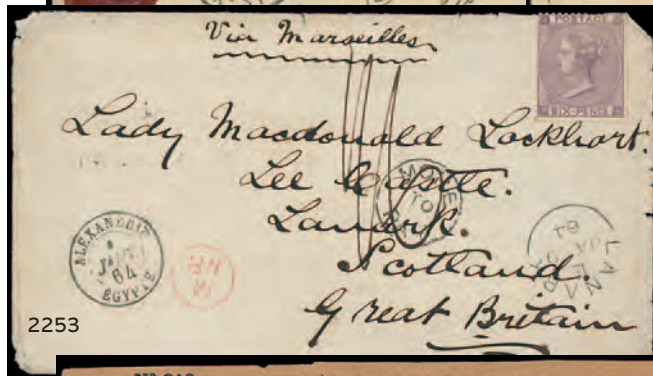 Via Marseilles
POSTAGE
SIX-PENCE
Lady Macdonald Lockhart.
Lee Castle.
Lanark.
Scotland
Great Britain
ALEXANDRIE
64
EGYPTE
LANARK
64
2253